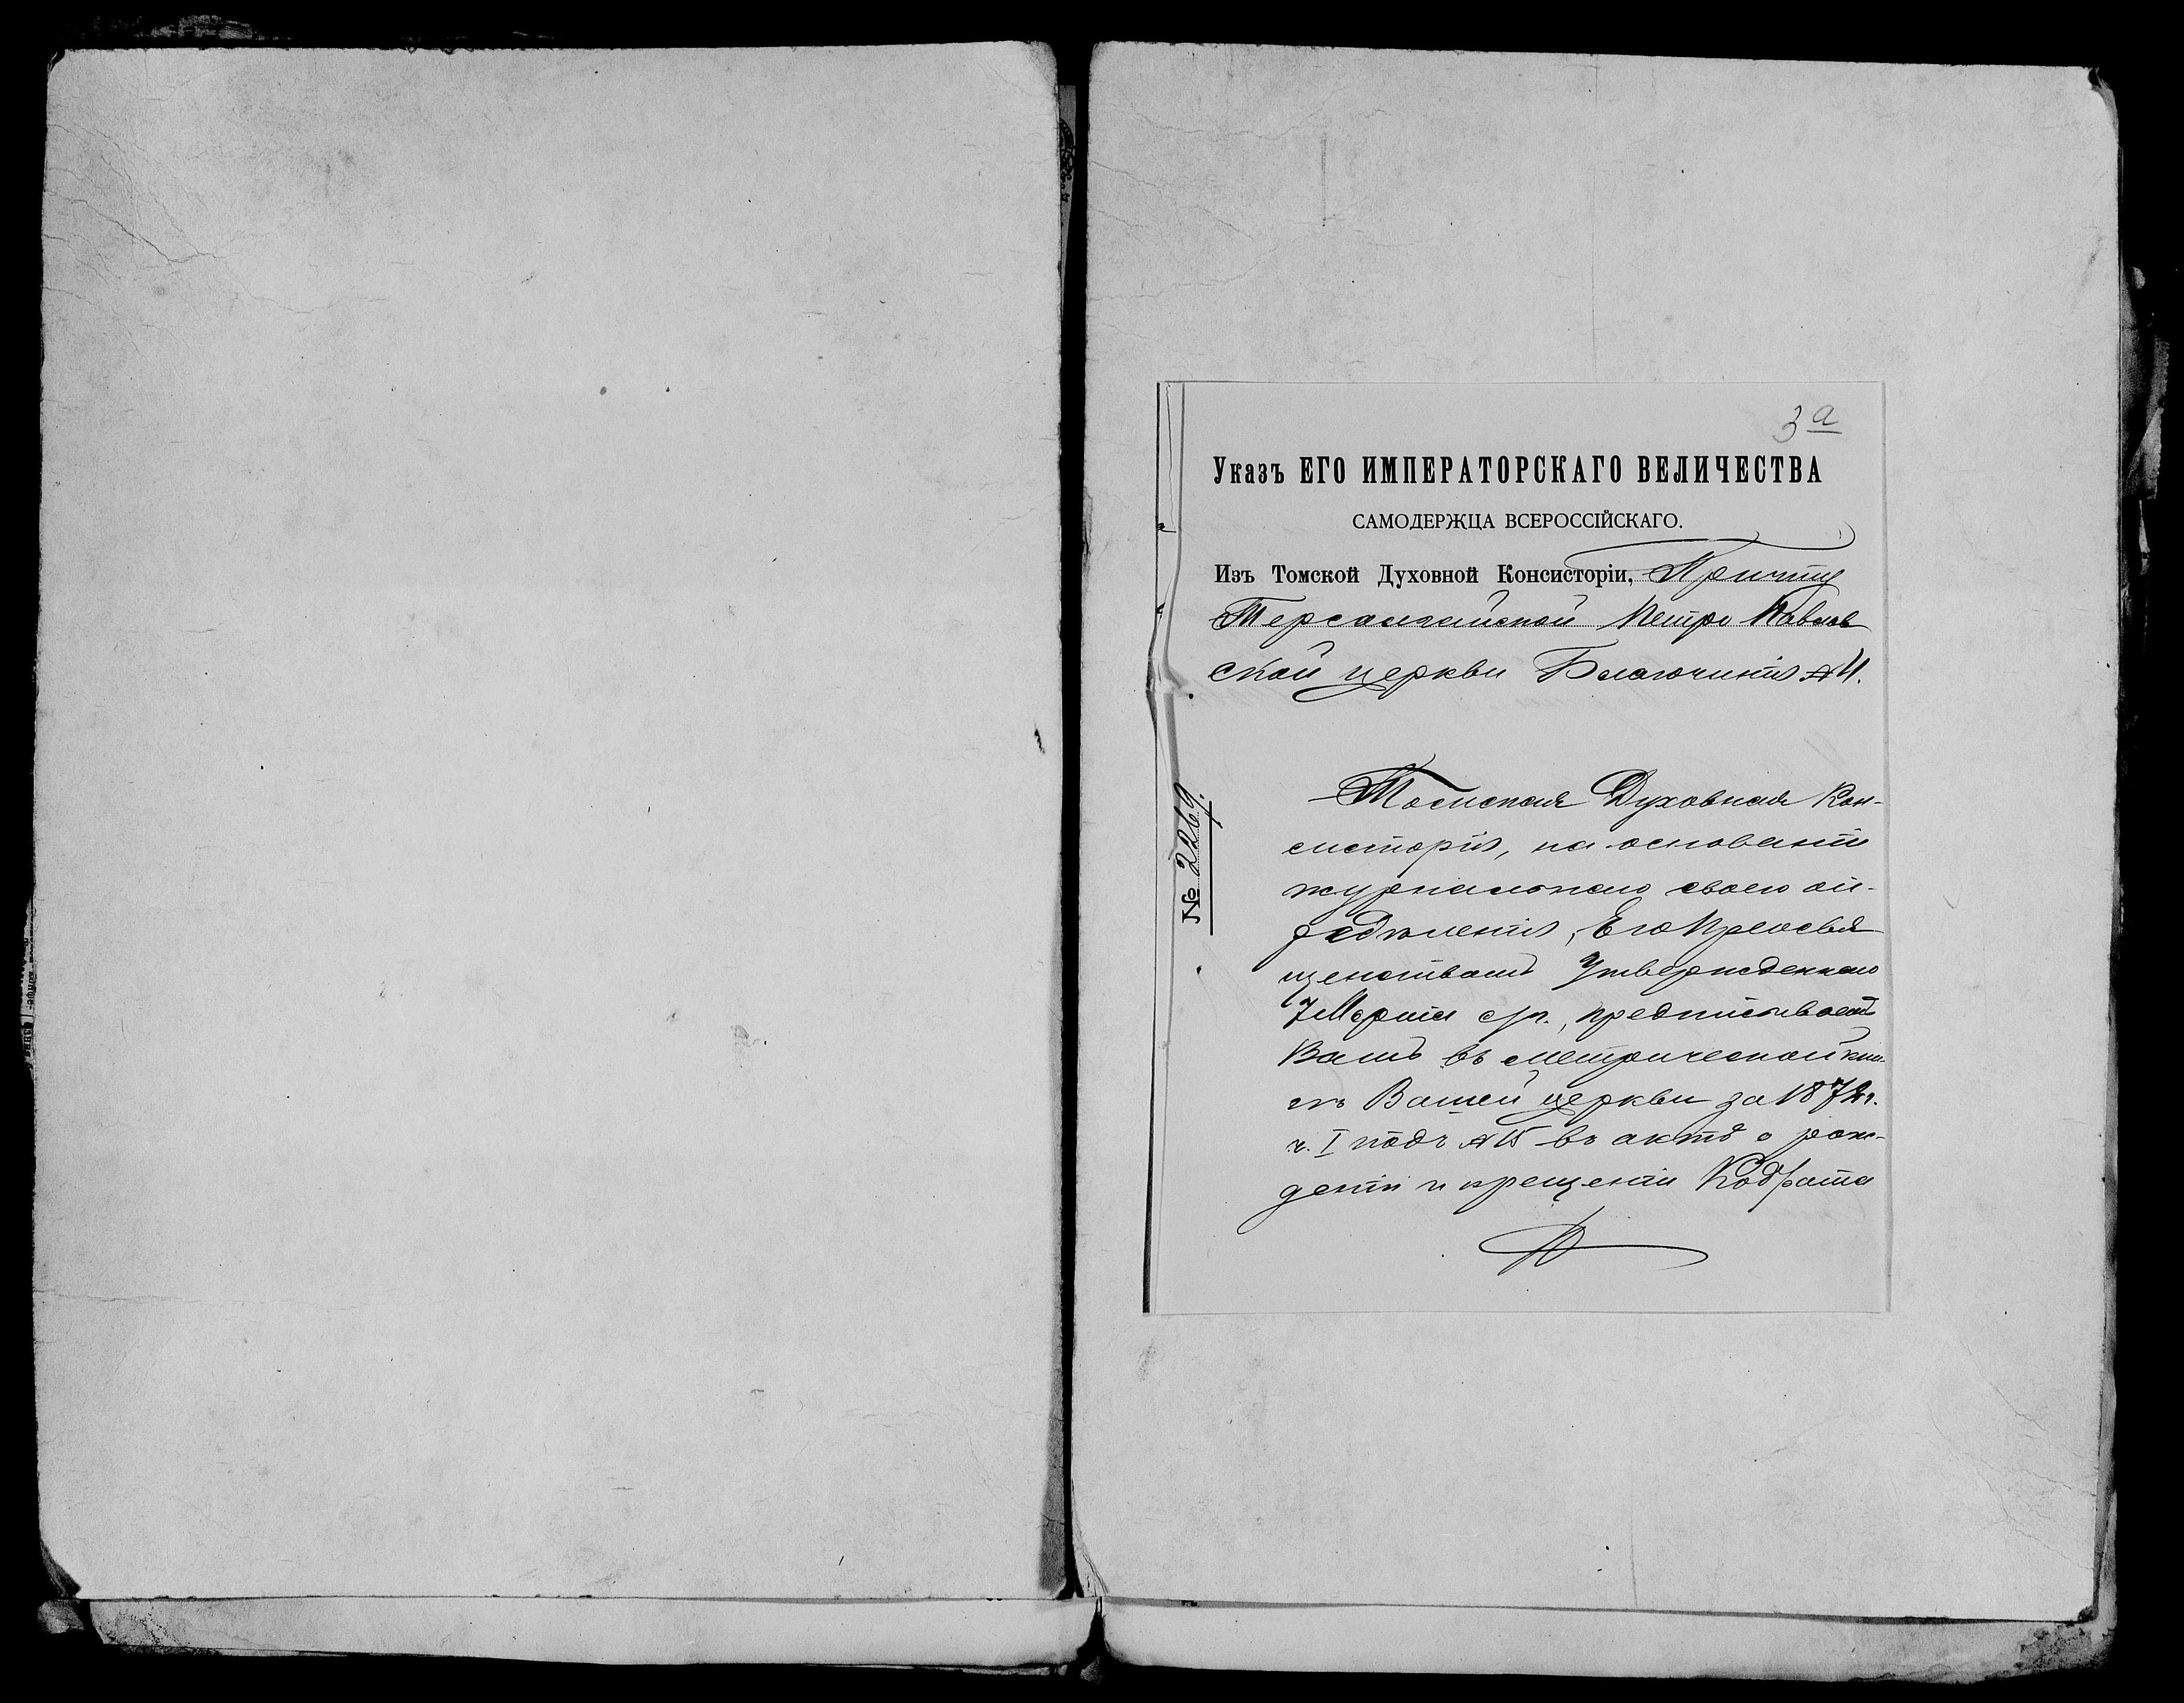 3 а
Указъ ЕГО ИМПЕРАТОРСКАГО ВЕЛИЧЕСТВА
САМОДЕРЖЦА ВСЕРОССІЙСКАГО.
Изъ Томской Духовной Консисторіи, Причту
Петро Павлов
ской церкви Благочинія
№ 2269.
Томская Духовная Кон-
систорія, на основаніи
журнальнаго своего оп-
редѣленія, Его Преосвя
щенствомъ Утвержденнаго
7 Марта с/г., предписываетъ
Вамъ въ метрической кни-
гѣ Вашей церкви за 1872 г.
ч. I подъ № 15 въ актѣ о рож-
деніи и крещеніи Кодрата